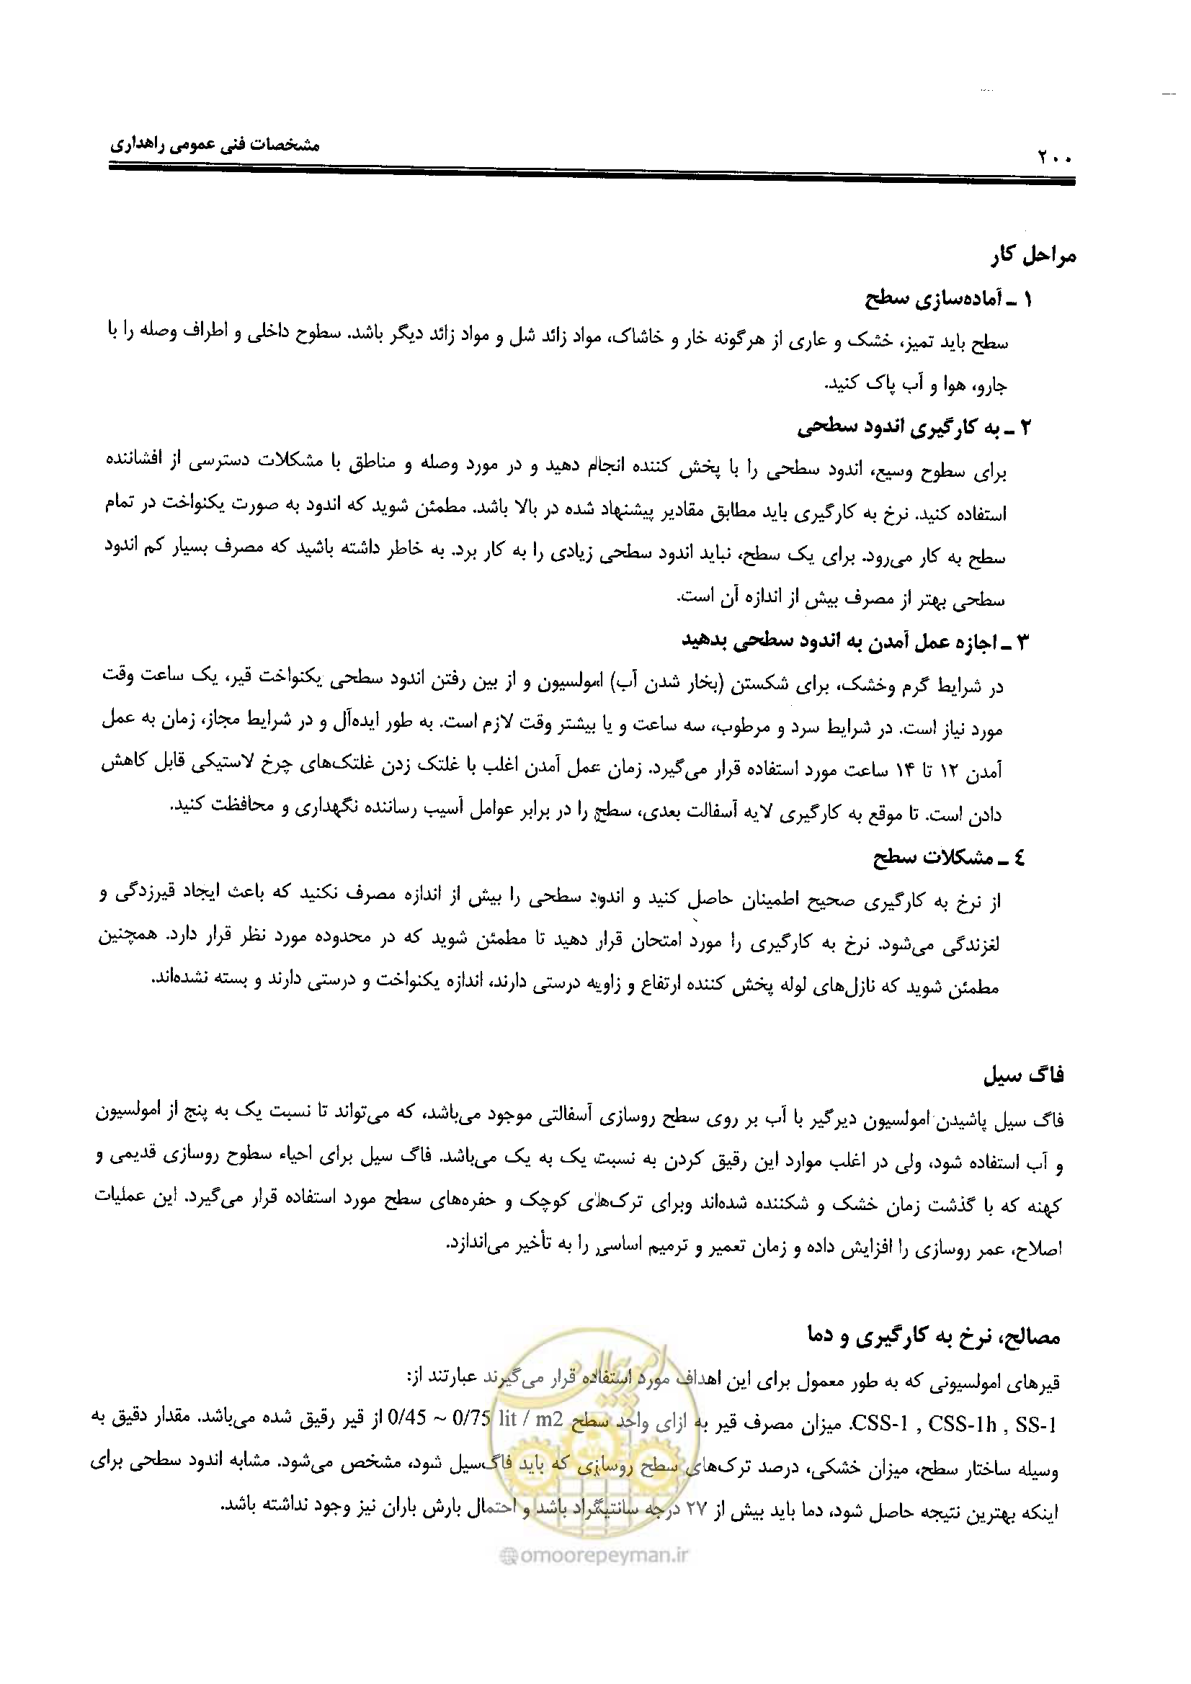 مشخصات فنی عمومی راهداری
۲۰۰
مراحل کار
۱ ـ آماده‌سازی سطح
سطح باید تمیز، خشک و عاری از هرگونه خار و خاشاک، مواد زائد شل و مواد زائد دیگر باشد. سطوح داخلی و اطراف وصله را با
جارو، هوا و آب پاک کنید.
۲ ـ به کارگیری اندود سطحی
برای سطوح وسیع، اندود سطحی را با پخش کننده انجام دهید و در مورد وصله و مناطق با مشکلات دسترسی از افشاننده
استفاده کنید. نرخ به کارگیری باید مطابق مقادیر پیشنهاد شده در بالا باشد. مطمئن شوید که اندود به صورت یکنواخت در تمام
سطح به کار می‌رود. برای یک سطح، نباید اندود سطحی زیادی را به کار برد. به خاطر داشته باشید که مصرف بسیار کم اندود
سطحی بهتر از مصرف بیش از اندازه آن است.
۳ ـ اجازه عمل آمدن به اندود سطحی بدهید
در شرایط گرم وخشک، برای شکستن (بخار شدن آب) امولسیون و از بین رفتن اندود سطحی یکنواخت قیر، یک ساعت وقت
مورد نیاز است. در شرایط سرد و مرطوب، سه ساعت و یا بیشتر وقت لازم است. به طور ایده‌آل و در شرایط مجاز، زمان به عمل
آمدن ۱۲ تا ۱۴ ساعت مورد استفاده قرار می‌گیرد. زمان عمل آمدن اغلب با غلتک زدن غلتک‌های چرخ لاستیکی قابل کاهش
دادن است. تا موقع به کارگیری لایه آسفالت بعدی، سطح را در برابر عوامل آسیب رساننده نگهداری و محافظت کنید.
٤ ـ مشکلات سطح
از نرخ به کارگیری صحیح اطمینان حاصل کنید و اندود سطحی را بیش از اندازه مصرف نکنید که باعث ایجاد قیرزدگی و
لغزندگی می‌شود. نرخ به کارگیری را مورد امتحان قرار دهید تا مطمئن شوید که در محدوده مورد نظر قرار دارد. همچنین
مطمئن شوید که نازل‌های لوله پخش کننده ارتفاع و زاویه درستی دارند، اندازه یکنواخت و درستی دارند و بسته نشده‌اند.
فاگ سیل
فاگ سیل پاشیدن امولسیون دیرگیر با آب بر روی سطح روسازی آسفالتی موجود می‌باشد، که می‌تواند تا نسبت یک به پنج از امولسیون
و آب استفاده شود، ولی در اغلب موارد این رقیق کردن به نسبت یک به یک می‌باشد. فاگ سیل برای احیاء سطوح روسازی قدیمی و
کهنه که با گذشت زمان خشک و شکننده شده‌اند وبرای ترک‌های کوچک و حفره‌های سطح مورد استفاده قرار می‌گیرد. این عملیات
اصلاح، عمر روسازی را افزایش داده و زمان تعمیر و ترمیم اساسی را به تأخیر می‌اندازد.
مصالح، نرخ به کارگیری و دما
قیرهای امولسیونی که به طور معمول برای این اهداف مورد استفاده قرار می‌گیرند عبارتند از:
CSS-1 , CSS-1h , SS-1. میزان مصرف قیر به ازای واحد سطح 0/45 ~ 0/75 lit / m2 از قیر رقیق شده می‌باشد. مقدار دقیق به
وسیله ساختار سطح، میزان خشکی، درصد ترک‌های سطح روسازی که باید فاگ‌سیل شود، مشخص می‌شود. مشابه اندود سطحی برای
اینکه بهترین نتیجه حاصل شود، دما باید بیش از ۲۷ درجه سانتیگراد باشد و احتمال بارش باران نیز وجود نداشته باشد.
امور پیمان
@omoorepeyman.ir